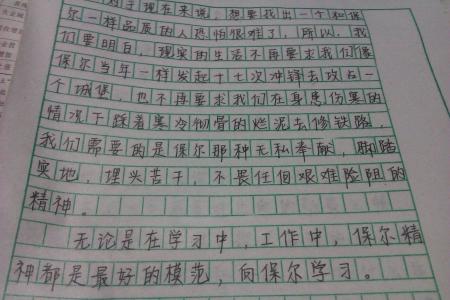 对于现在来说，想要找出一个和保
尔一样品质的人恐怕很难了，所以，我
们要明白，现实的生活不再要求我们像
保尔当年一样发起十七次冲锋去攻占一
个城堡，也不再要求我们在身患伤寒的
情况下踩着寒冷彻骨的烂泥去修铁路，
我们需要的是保尔那种无私奉献，脚踏
实地，埋头苦干，不畏任何艰难险阻的
精神。
无论是在学习中，工作中，保尔精
神都是最好的模范，向保尔学习。